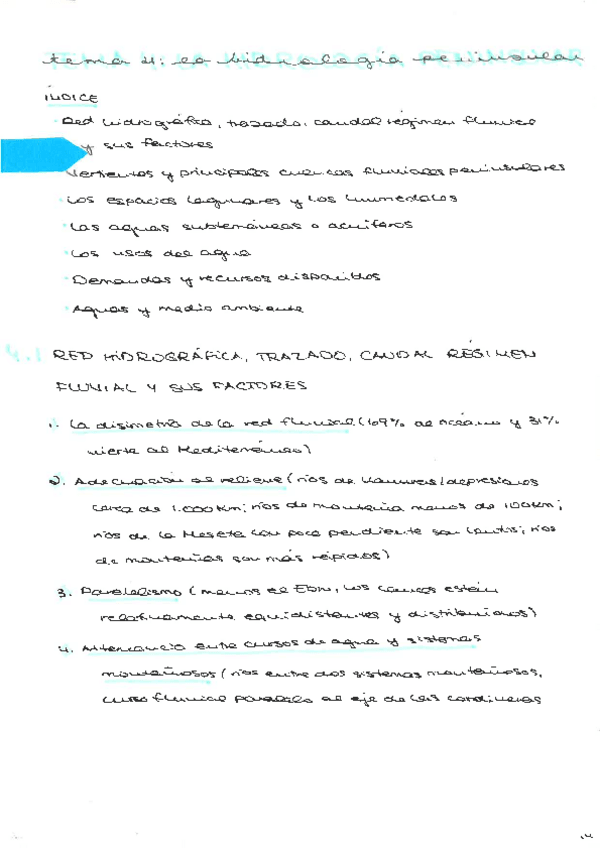 tema 4: la hidrología peninsular
ÍNDICE
· Red hidrográfica, trazado, caudal régimen fluvial
y sus factores
· Vertientes y principales cuencas fluviales peninsulares
· Los espacios lagunares y los humedales
· Las aguas subterráneas o acuíferos
· Los usos del agua
· Demandas y recursos disponibles
· Aguas y medio ambiente
4.1 RED HIDROGRÁFICA, TRAZADO, CAUDAL RÉGIMEN
FLUVIAL Y SUS FACTORES
1. La disimetría de la red fluvial (69% al océano y 31%
vierte al Mediterráneo)
2. Adecuación al relieve (ríos de llanuras/depresiones
cerca de 1.000km; ríos de montaña menos de 100km;
ríos de la Meseta con poca pendiente son lentos; ríos
de montañas son más rápidos)
3. Paralelismo (menos el Ebro, los cauces están
relativamente equidistantes y distribuidos)
4. Alternancia entre cursos de agua y sistemas
montañosos (ríos entre dos sistemas montañosos,
curso fluvial paralelo al eje de las cordilleras